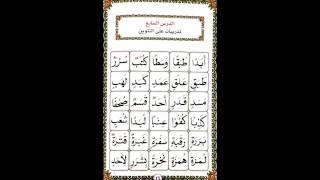 الدرس السابع
تدريبات على التنوين
أَبَدًا طَبَقًا وَسَطًا كُتُبٌ سُرُرٌ
طَبَقٍ عَلَقٍ عَمَدٍ كَبَدٍ لَهَبٍ
مَسَدٍ قَدَرٍ أَحَدٌ قَسَمٌ صُحُفًا
كَذِبًا كُفُوًا عِنَبًا لُبَدًا شُعَبٍ
بَرَرَةٍ رَقَبَةٍ سَفَرَةٍ غَبَرَةٌ قَتَرَةٌ
لُمَزَةٍ هُمَزَةٍ نَخِرَةً بِشَرَرٍ لِأَحَدٍ